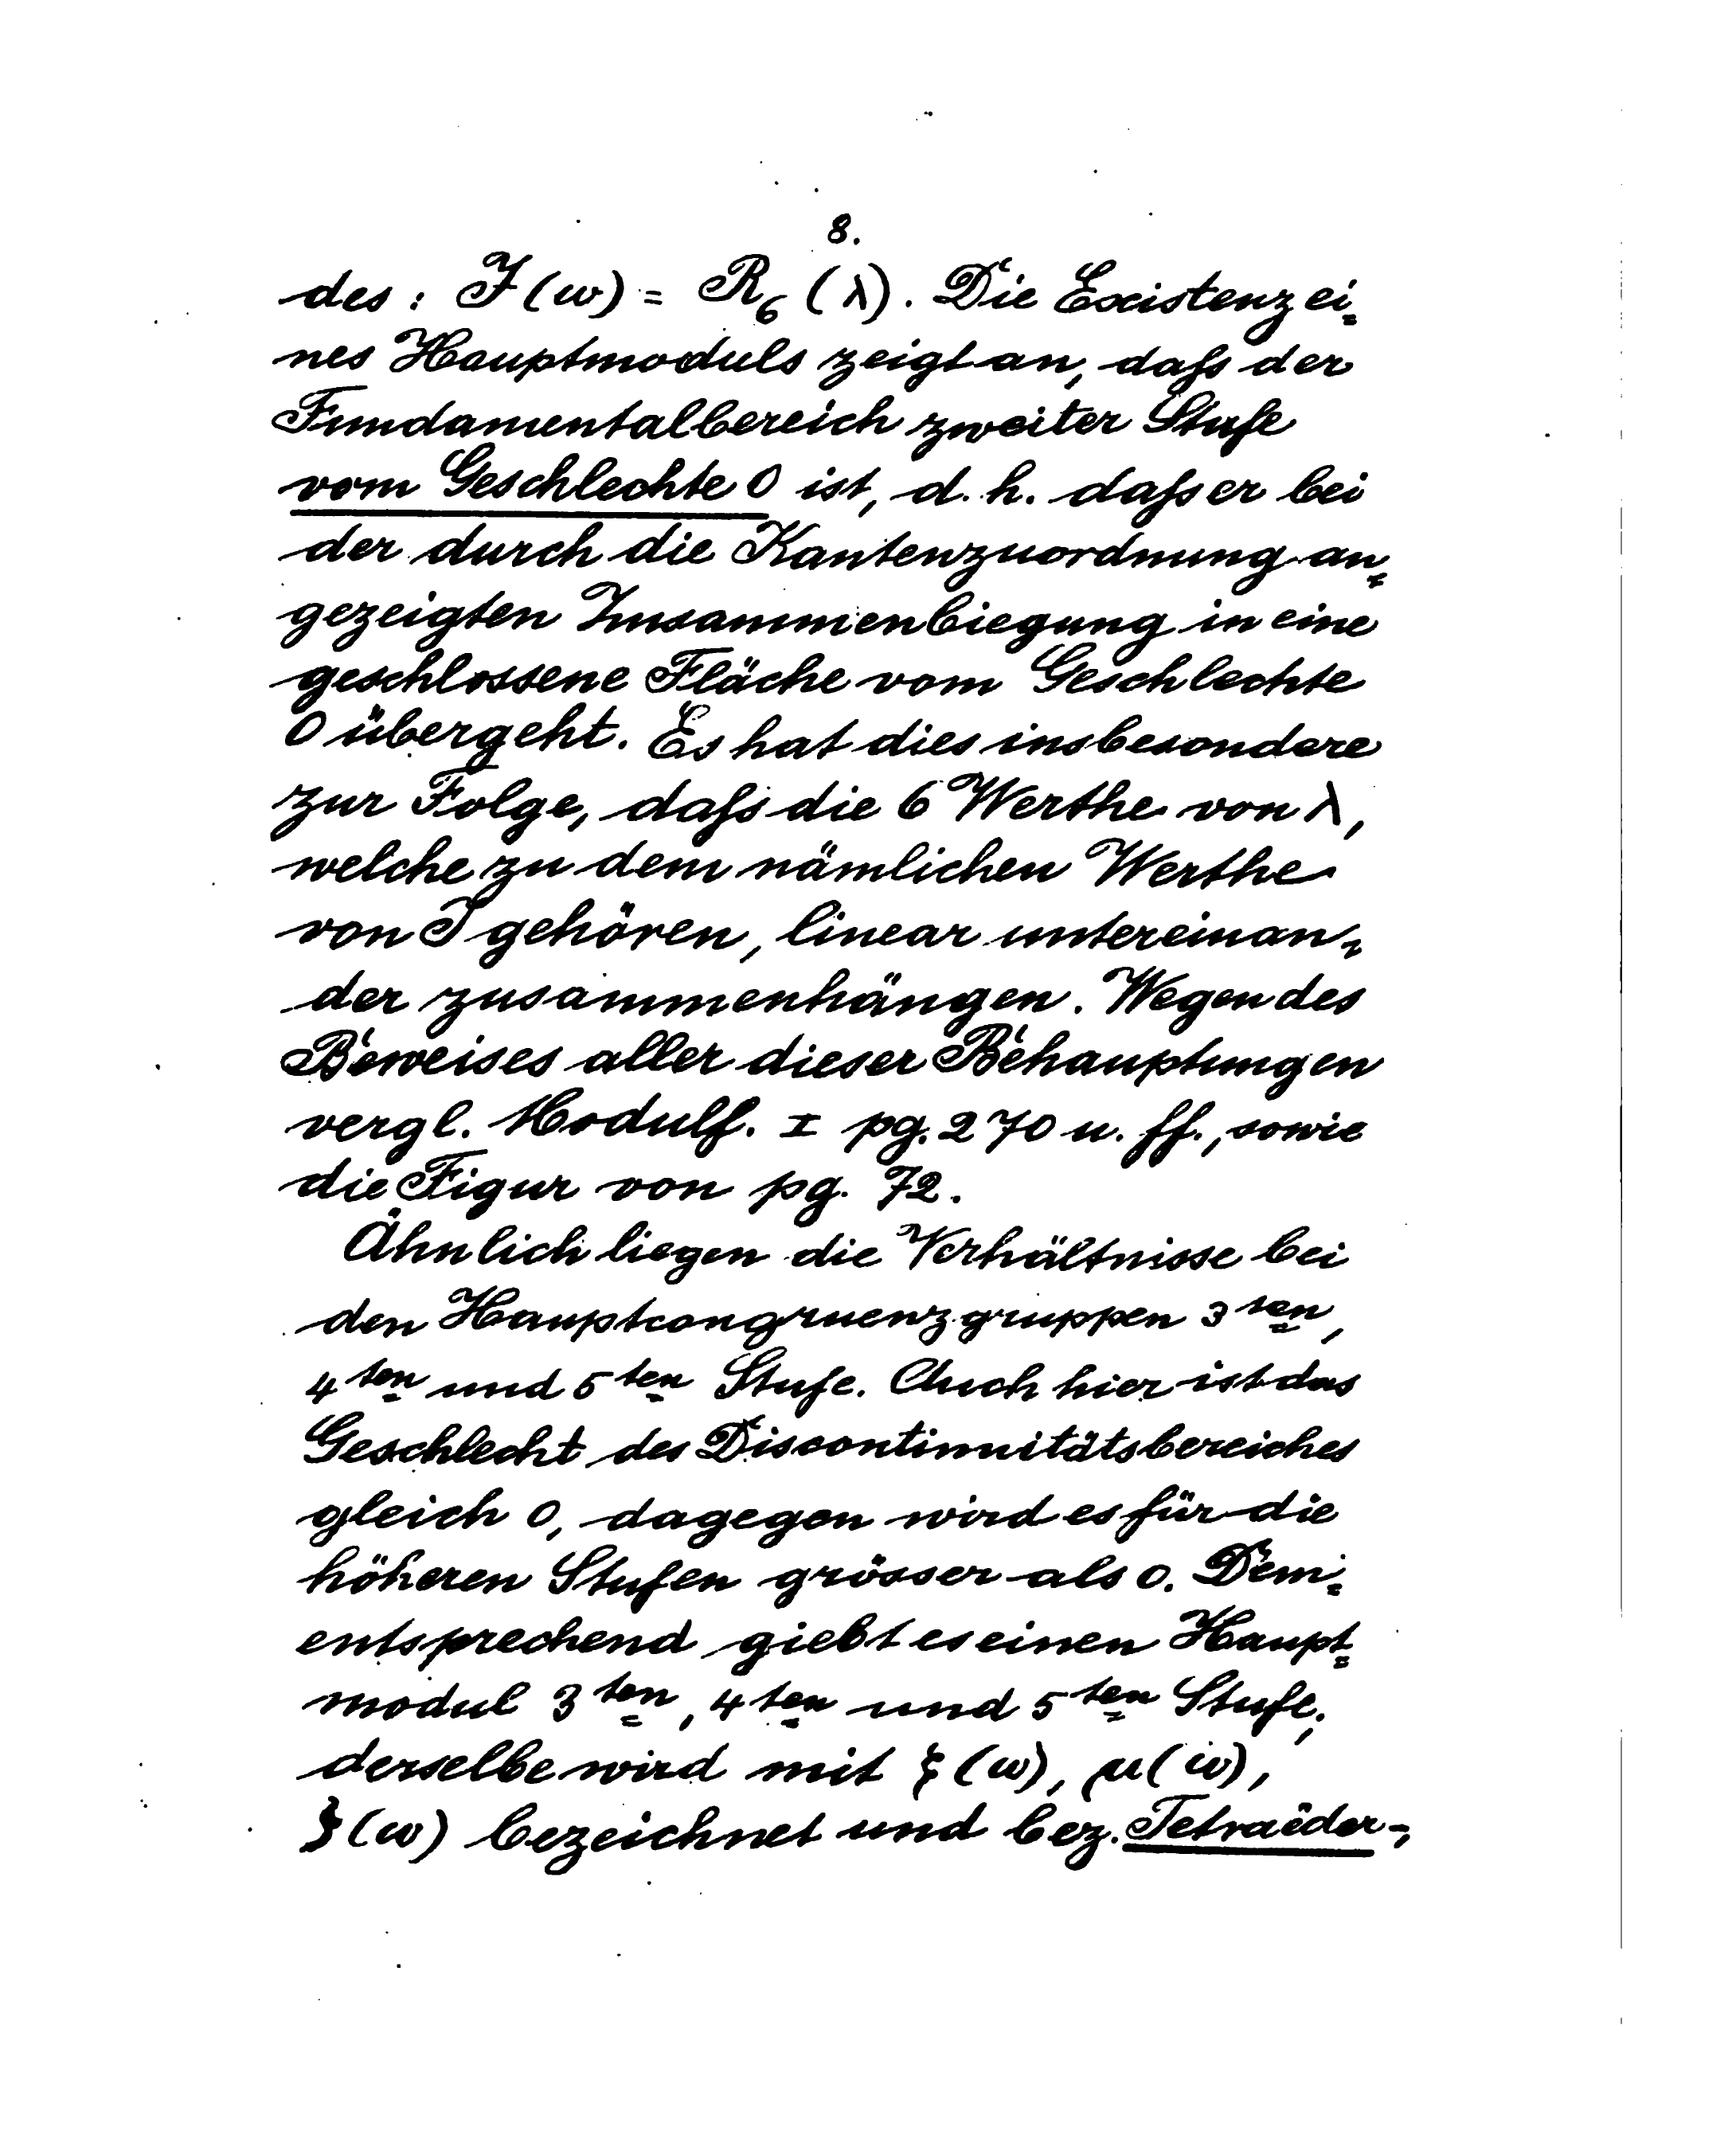 8.
des: J(ω) = R₆(λ). Die Existenz ei=
nes Hauptmoduls zeigt an, daſs der
Fundamentalbereich zweiter Stufe
vom Geschlechte 0 ist, d. h. daſs er bei
der durch die Kantenzuordnung an=
gezeigten Zusammenbiegung in eine
geschlossene Fläche vom Geschlechte
0 übergeht. Es hat dies insbesondere
zur Folge, daſs die 6 Werthe von λ,
welche zu dem nämlichen Werthe
von J gehören, linear untereinan=
der zusammenhängen. Wegen des
Beweises aller dieser Behauptungen
vergl. Modulf. I pg. 270 u. ff., sowie
die Figur von pg. 72.
Ähnlich liegen die Verhältnisse bei
den Hauptcongruenzgruppen 3ten,
4ten und 5ten Stufe. Auch hier ist das
Geschlecht des Discontinuitätsbereiches
gleich 0, dagegen wird es für die
höheren Stufen grösser als 0. Dem=
entsprechend giebt es einen Haupt=
modul 3ten, 4ten und 5ten Stufe;
derselbe wird mit ξ(ω), μ(ω),
ζ(ω) bezeichnet und bez. Tetraëder-,